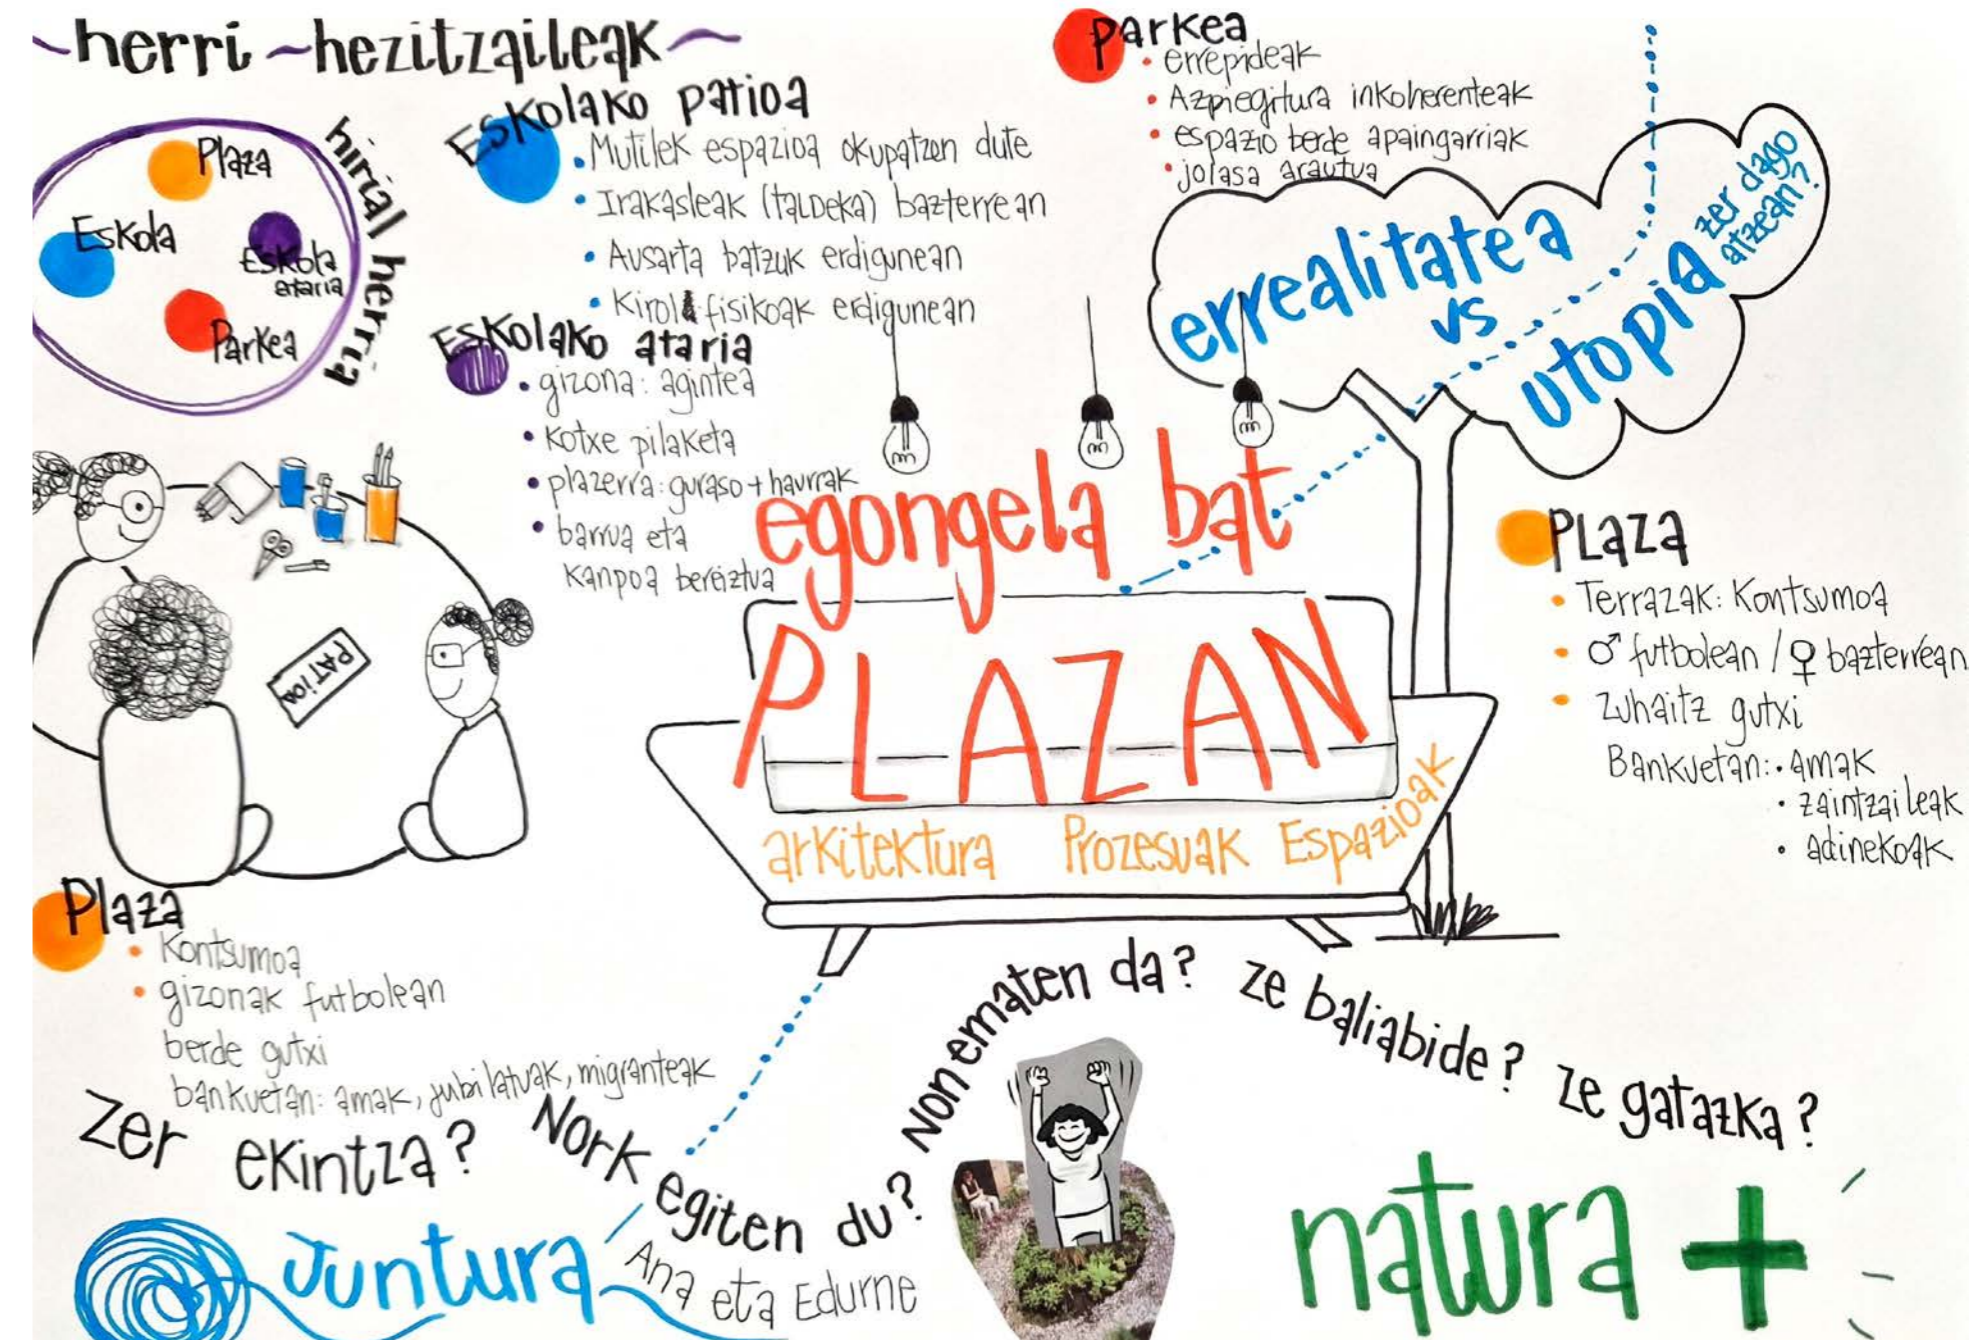 ~herri~hezitzaileak~
Plaza
Eskola
Eskola
ataria
Parkea
hiria/herria
Eskolako patioa
• Mutilek espazioa okupatzen dute
• Irakasleak (taldeka) bazterrean
• Ausarta batzuk erdigunean
• Kirol fisikoak erdigunean
Eskolako ataria
• gizona: agintea
• kotxe pilaketa
• plazerra: guraso + haurrak
• barrua eta
kanpoa bereiztua
Parkea
• errepideak
• Azpiegitura inkoherenteak
• espazio berde apaingarriak
• jolasa arautua
errealitatea
vs
utopia
zer dago
atzean?
egongela bat
PLAZAN
arkitektura Prozesuak Espazioak
PATIOA
PLAZA
• Terrazak: Kontsumoa
• ♂ futbolean / ♀ bazterrean
• Zuhaitz gutxi
Bankuetan: • Amak
• zaintzaileak
• adinekoak
Plaza
• Kontsumoa
• gizonak futbolean
berde gutxi
bankuetan: amak, jubilatuak, migranteak
Zer ekintza? Nork egiten du? Non ematen da? ze baliabide? ze gatazka?
Juntura
Ana eta Edurne
natura +